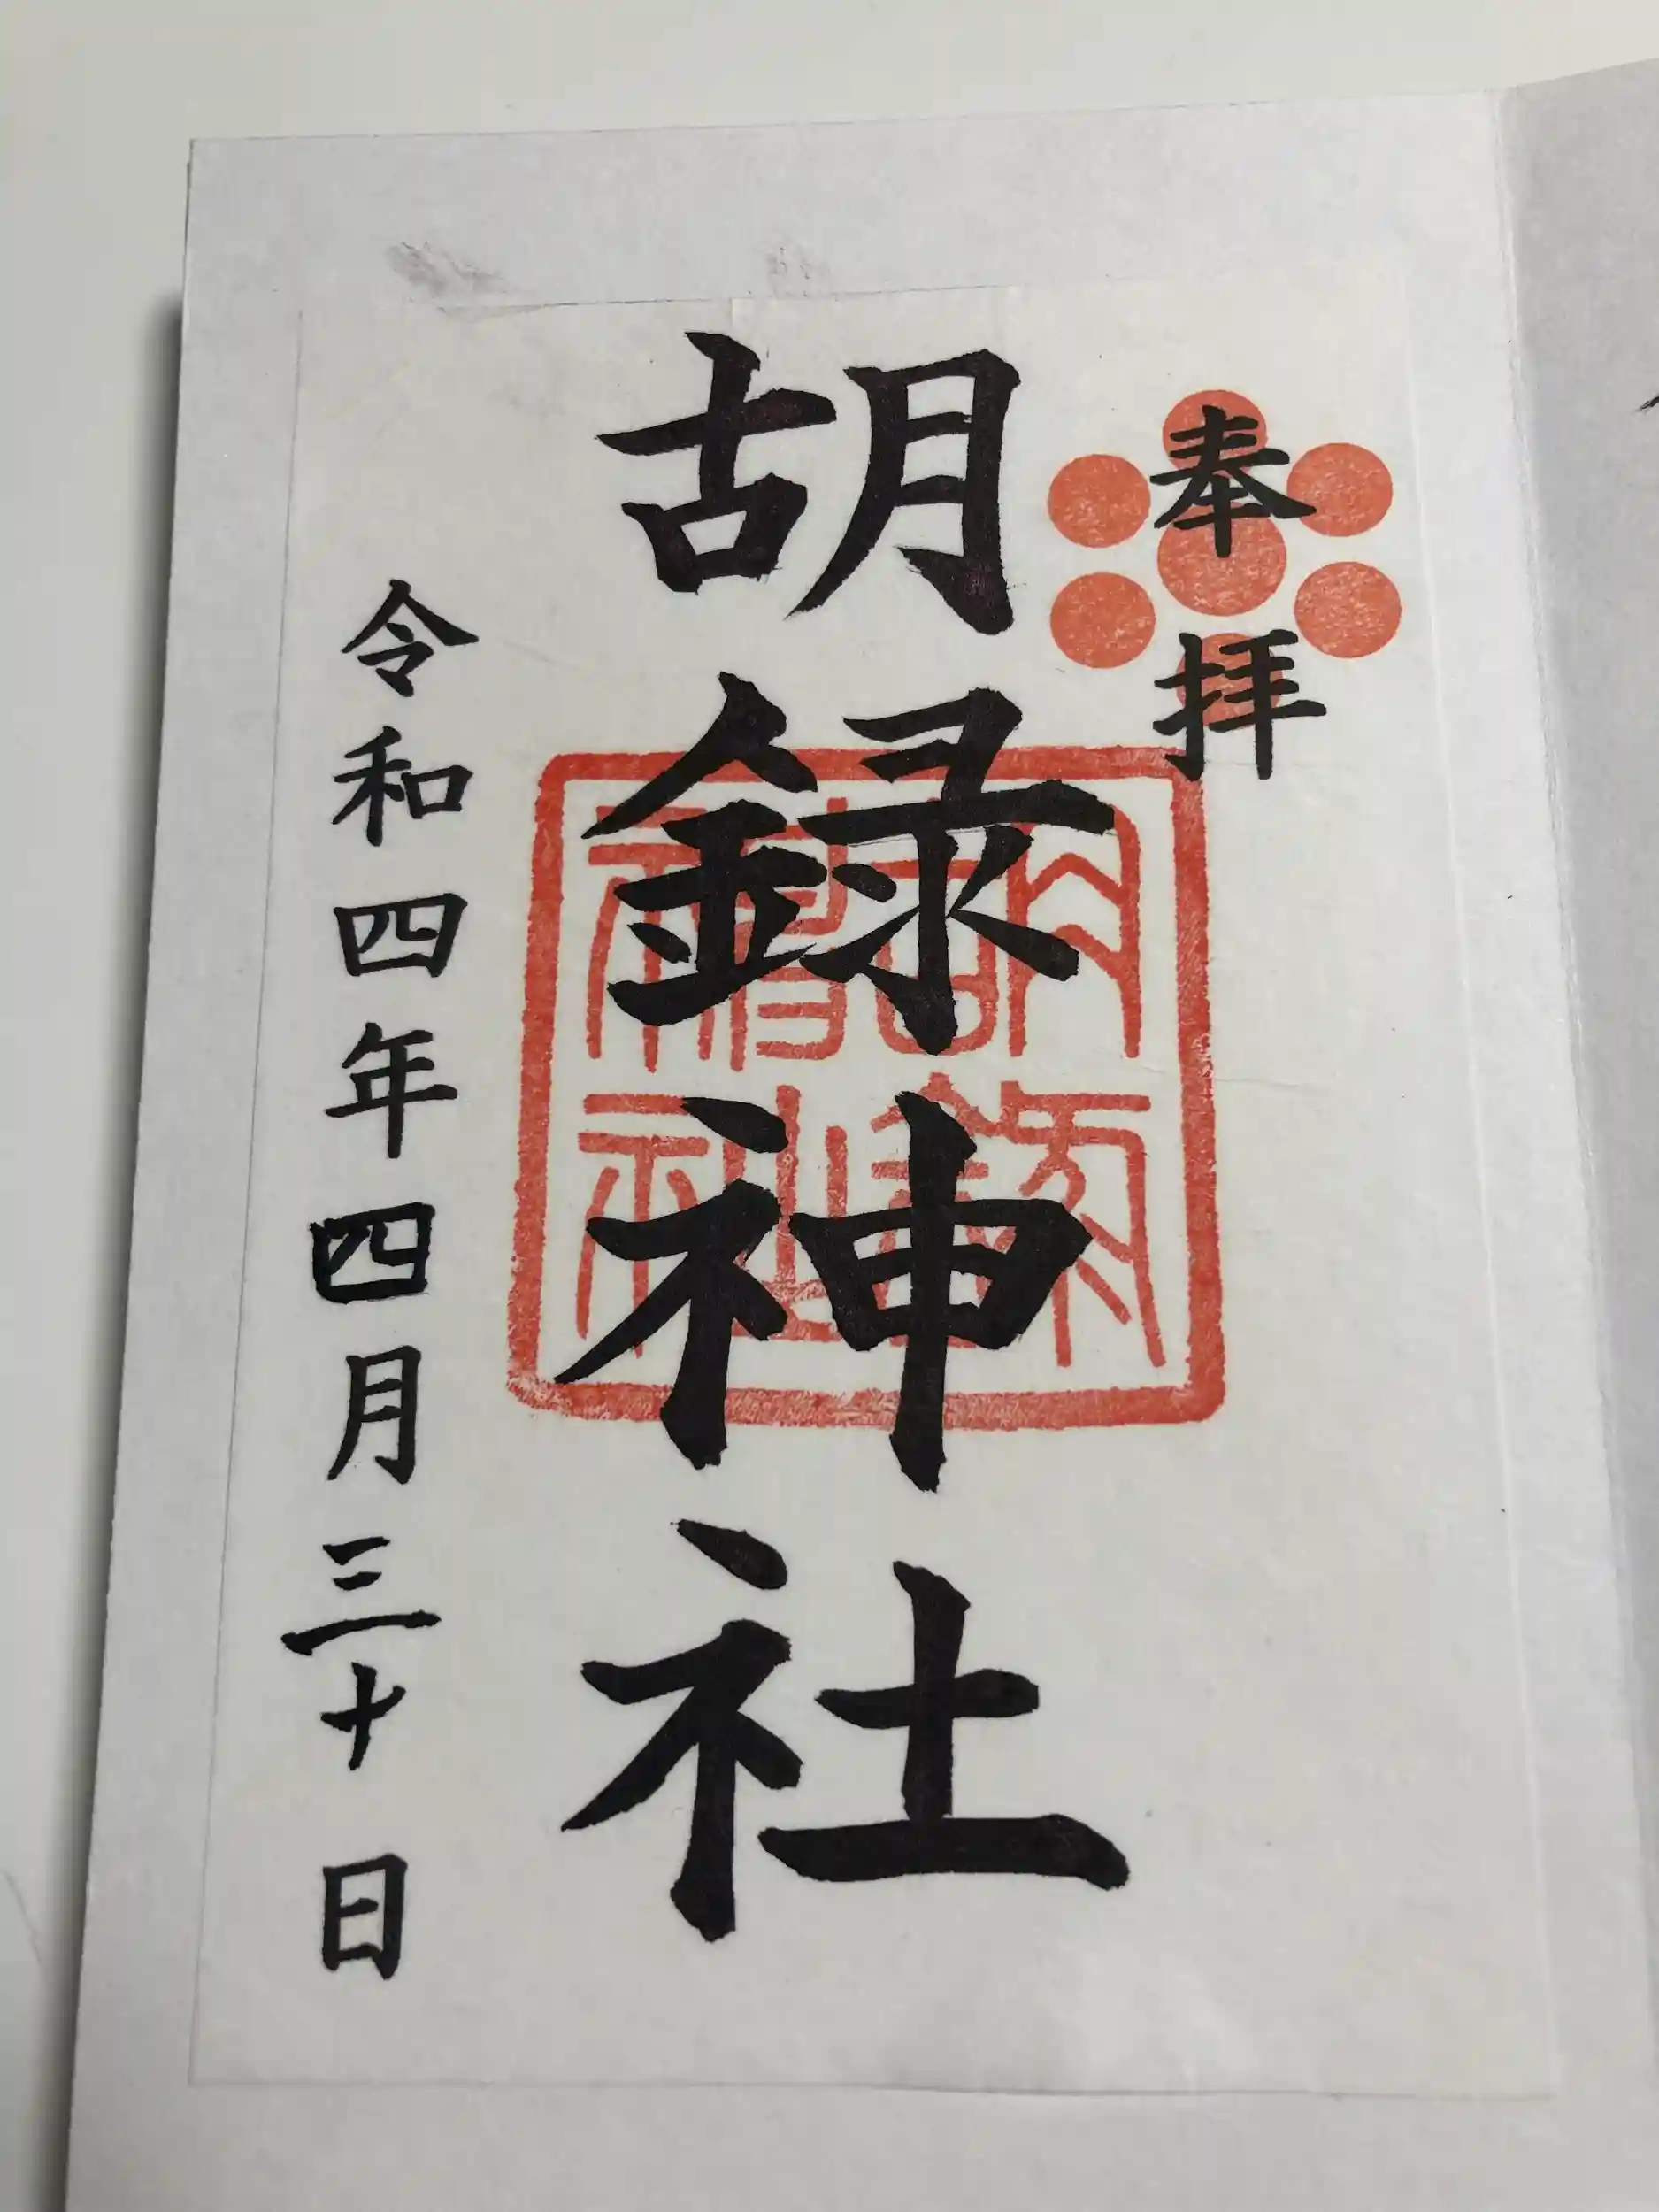 奉拝
胡録神社
令和四年四月三十日
胡録
神社